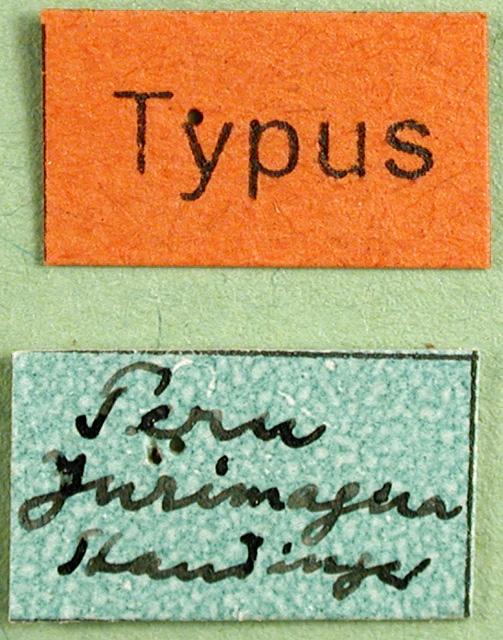 Typus
Peru
Jurimagua
Staudinger